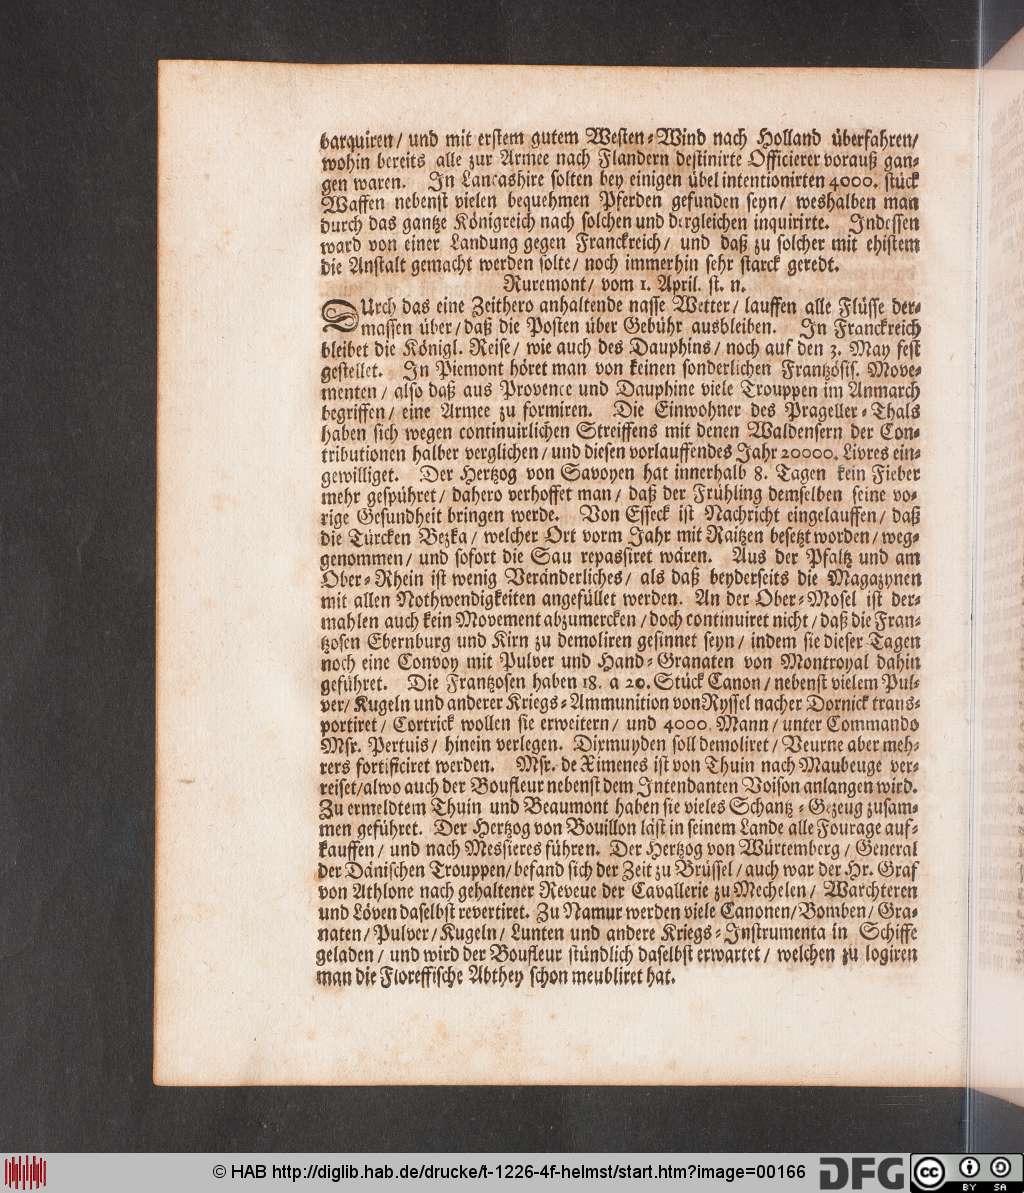 barquiren/ und mit erstem gutem Westen-Wind nach Holland überfahren/
wohin bereits alle zur Armee nach Flandern destinirte Officierer vorauß gan-
gen waren. In Lancashire solten bey einigen übel intentionirten 4000. stück
Waffen nebenst vielen bequehmen Pferden gefunden seyn/ weshalben man
durch das gantze Königreich nach solchen und dergleichen inquirirte. Indessen
ward von einer Landung gegen Franckreich/ und daß zu solcher mit ehistem
die Anstalt gemacht werden solte/ noch immerhin sehr starck geredt.
Ruremont/ vom 1. April. st. n.
Durch das eine Zeithero anhaltende nasse Wetter/ lauffen alle Flüsse der-
massen über/ daß die Posten über Gebühr ausbleiben. In Franckreich
bleibet die Königl. Reise/ wie auch des Dauphins/ noch auf den 3. May fest
gestellet. In Piemont höret man von keinen sonderlichen Frantzösis. Move-
menten/ also daß aus Provence und Dauphine viele Trouppen im Anmarch
begriffen/ eine Armee zu formiren. Die Einwohner des Prageller-Thals
haben sich wegen continuirlichen Streiffens mit denen Waldensern der Con-
tributionen halber verglichen/ und diesen vorlauffendes Jahr 20000. Livres ein-
gewilliget. Der Hertzog von Savoyen hat innerhalb 8. Tagen kein Fieber
mehr gespühret/ dahero verhoffet man/ daß der Frühling demselben seine vo-
rige Gesundheit bringen werde. Von Esseck ist Nachricht eingelauffen/ daß
die Türcken Bezka/ welcher Ort vorm Jahr mit Raitzen besetzt worden/ weg-
genommen/ und sofort die Sau repassiret wären. Aus der Pfaltz und am
Ober-Rhein ist wenig Veränderliches/ als daß beyderseits die Magazynen
mit allen Nothwendigkeiten angefüllet werden. An der Ober-Mosel ist der-
mahlen auch kein Movement abzumercken/ doch continuiret nicht/ daß die Fran-
tzosen Ebernburg und Kirn zu demoliren gesinnet seyn/ indem sie dieser Tagen
noch eine Convoy mit Pulver und Hand-Granaten von Montroyal dahin
geführet. Die Frantzosen haben 18. a 20. Stück Canon/ nebenst vielem Pul-
ver/ Kugeln und anderer Kriegs-Ammunition von Ryssel nacher Dornick trans-
portiret/ Cortrick wollen sie erweitern/ und 4000. Mann/ unter Commando
Msr. Pertuis/ hinein verlegen. Dixmuyden soll demoliret/ Veurne aber meh-
rers fortificiret werden. Msr. de Ximenes ist von Thuin nach Maubeuge ver-
reiset/ alwo auch der Boufleur nebenst dem Intendanten Voison anlangen wird.
Zu ermeldtem Thuin und Beaumont haben sie vieles Schantz-Gezeug zusam-
men geführet. Der Hertzog von Bouillon läst in seinem Lande alle Fourage auf-
kauffen/ und nach Messieres führen. Der Hertzog von Würtemberg/ General
der Dänischen Trouppen/ befand sich der Zeit zu Brüssel/ auch war der Hr. Graf
von Athlone nach gehaltener Reveue der Cavallerie zu Mechelen/ Warchteren
und Löven daselbst revertiret. Zu Namur werden viele Canonen/ Bomben/ Gra-
naten/ Pulver/ Kugeln/ Lunten und andere Kriegs-Instrumenta in Schiffe
geladen/ und wird der Boufleur stündlich daselbst erwartet/ welchen zu logiren
man die Floreffische Abthey schon meubliret hat.
© HAB http://diglib.hab.de/drucke/t-1226-4f-helmst/start.htm?image=00166
DFG
cc BY SA